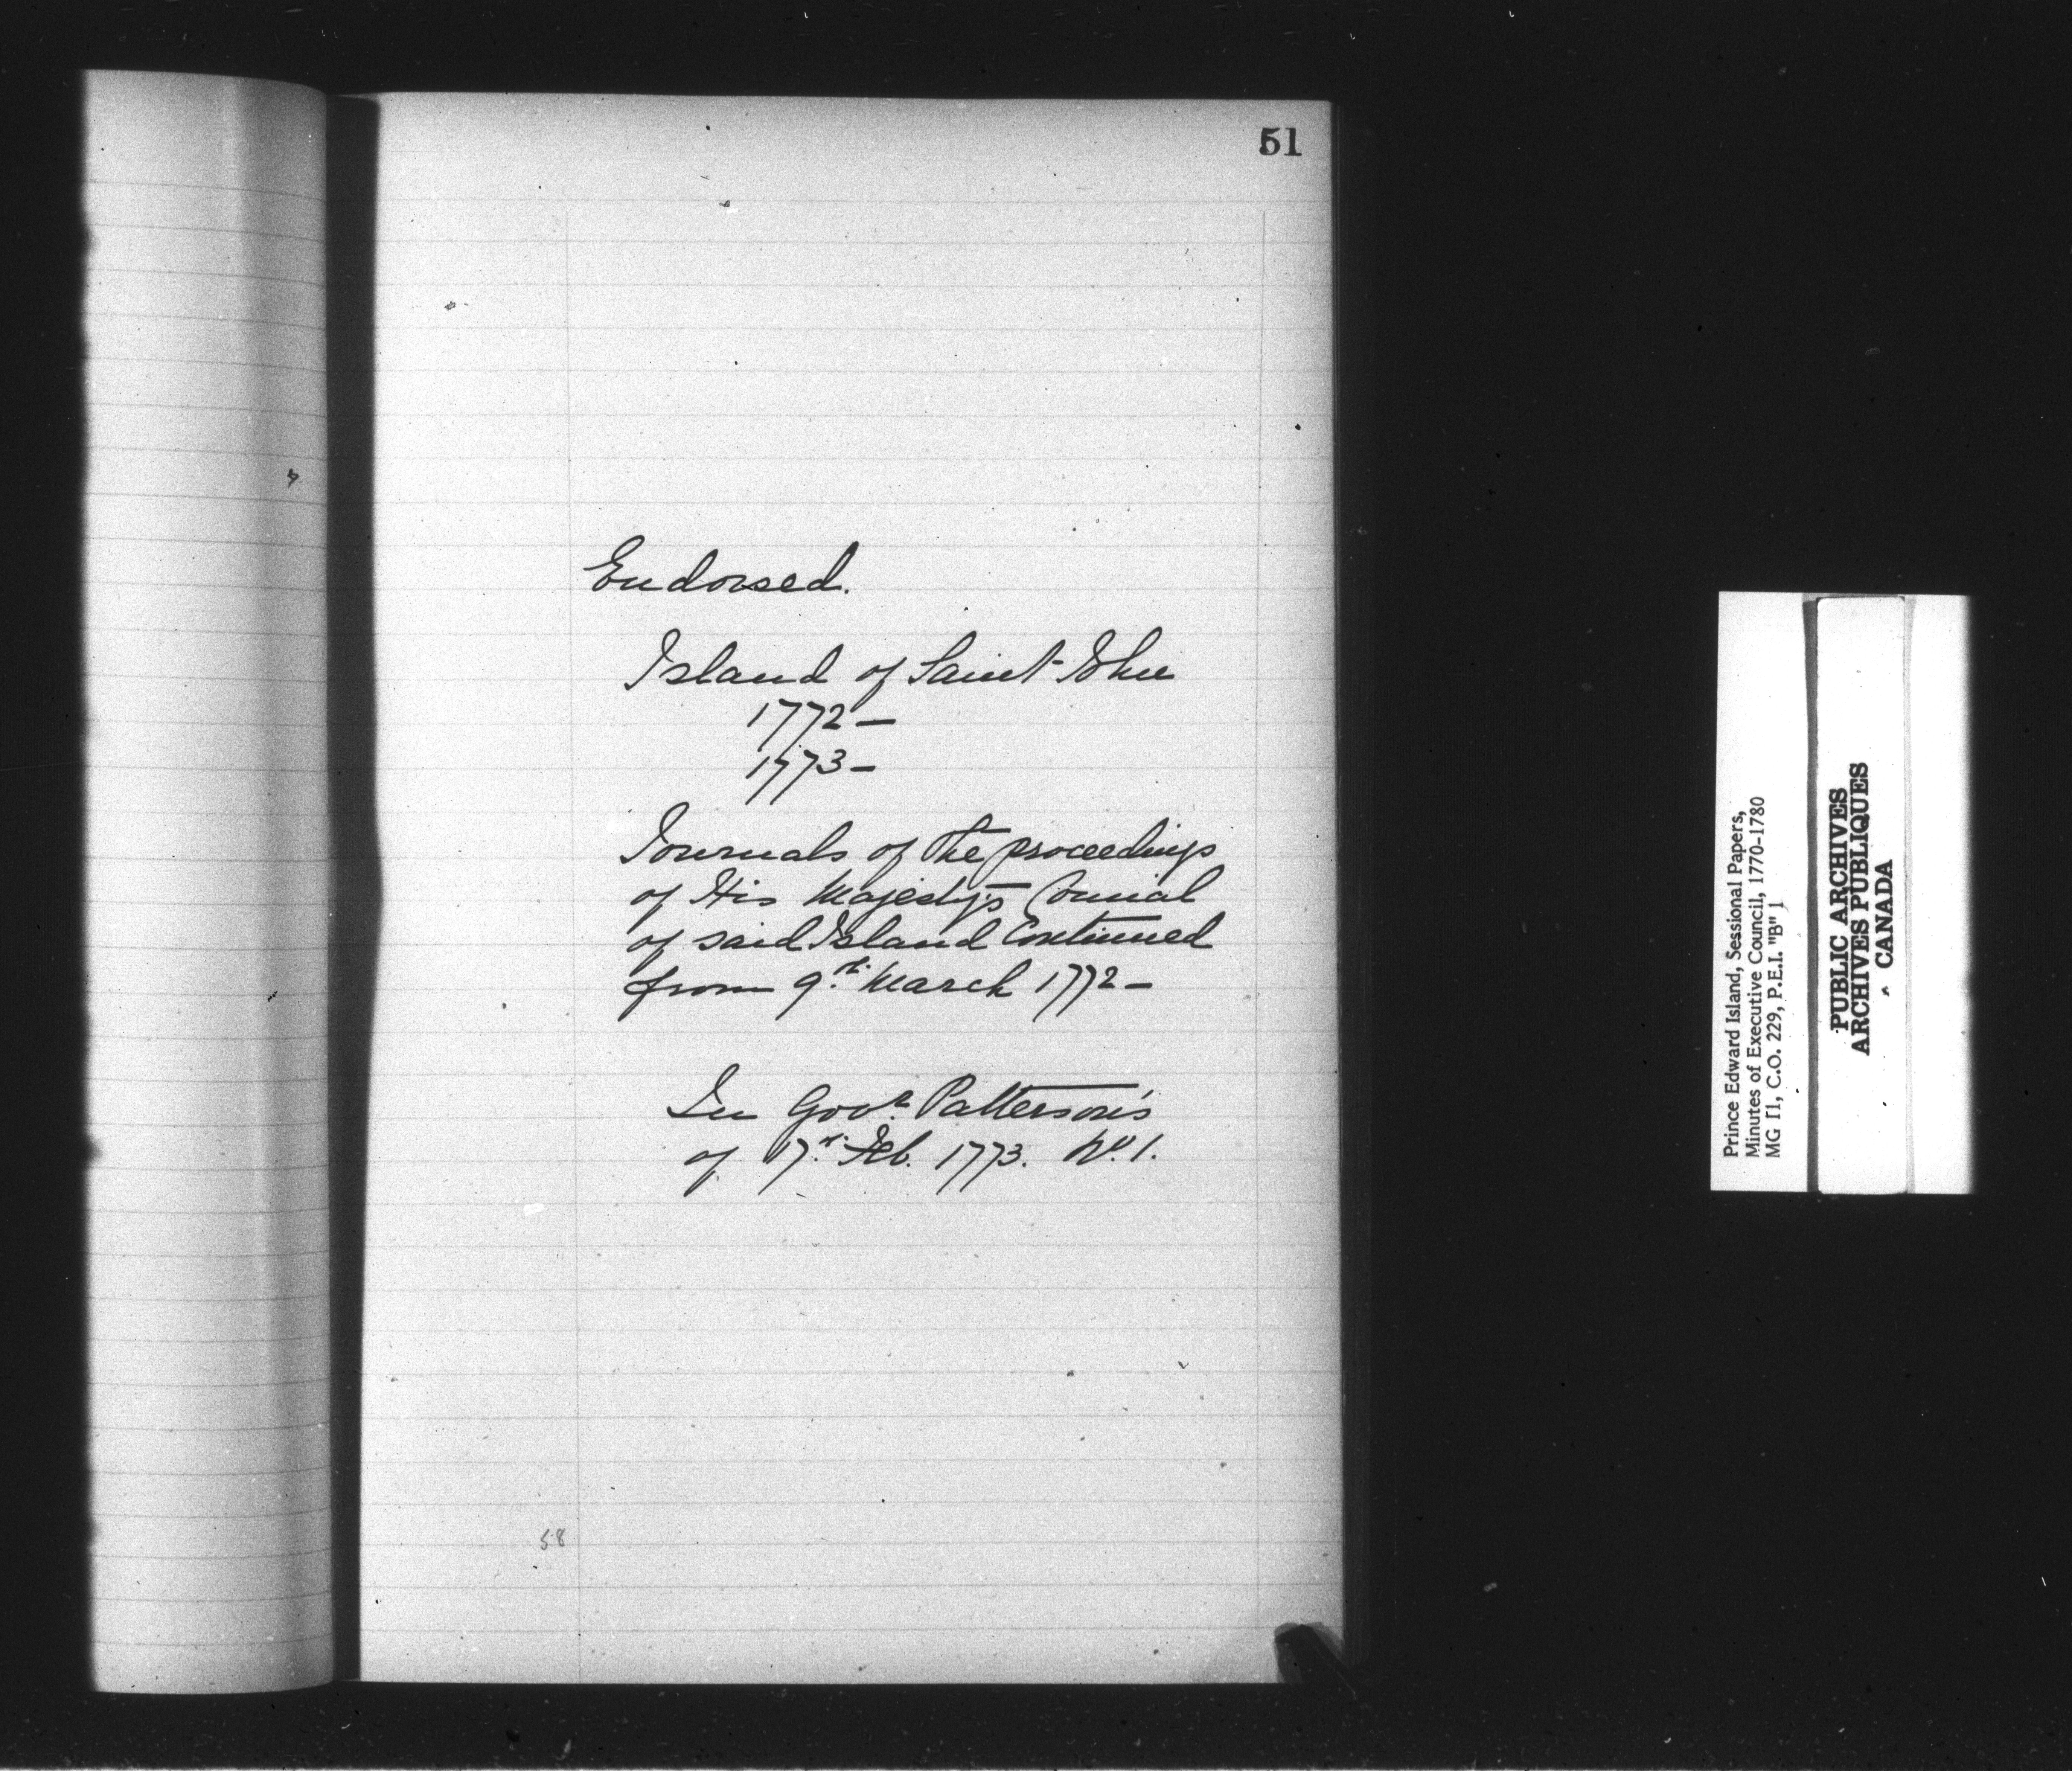 51
Endorsed.
Island of Saint John
1772 –
1773 –
Journals of the proceedings
of His Majesty's Council
of said Island Continued
from 9th March 1772 –
In Govr. Patterson's
of 17th Feb. 1773. No. 1.
58
Prince Edward Island, Sessional Papers,
Minutes of Executive Council, 1770-1780
MG 11, C.O. 229, P.E.I. "B" 1
PUBLIC ARCHIVES
ARCHIVES PUBLIQUES
CANADA